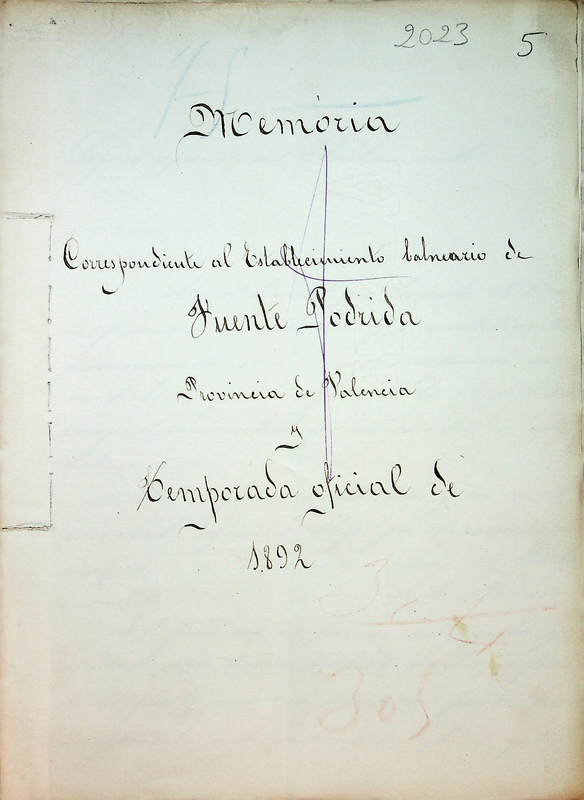 2023 5
75
Memória
Correspondiente al Establecimiento balneario de
Fuente Podrida
Provincia de Valencia
y
Temporada oficial de
1892
305